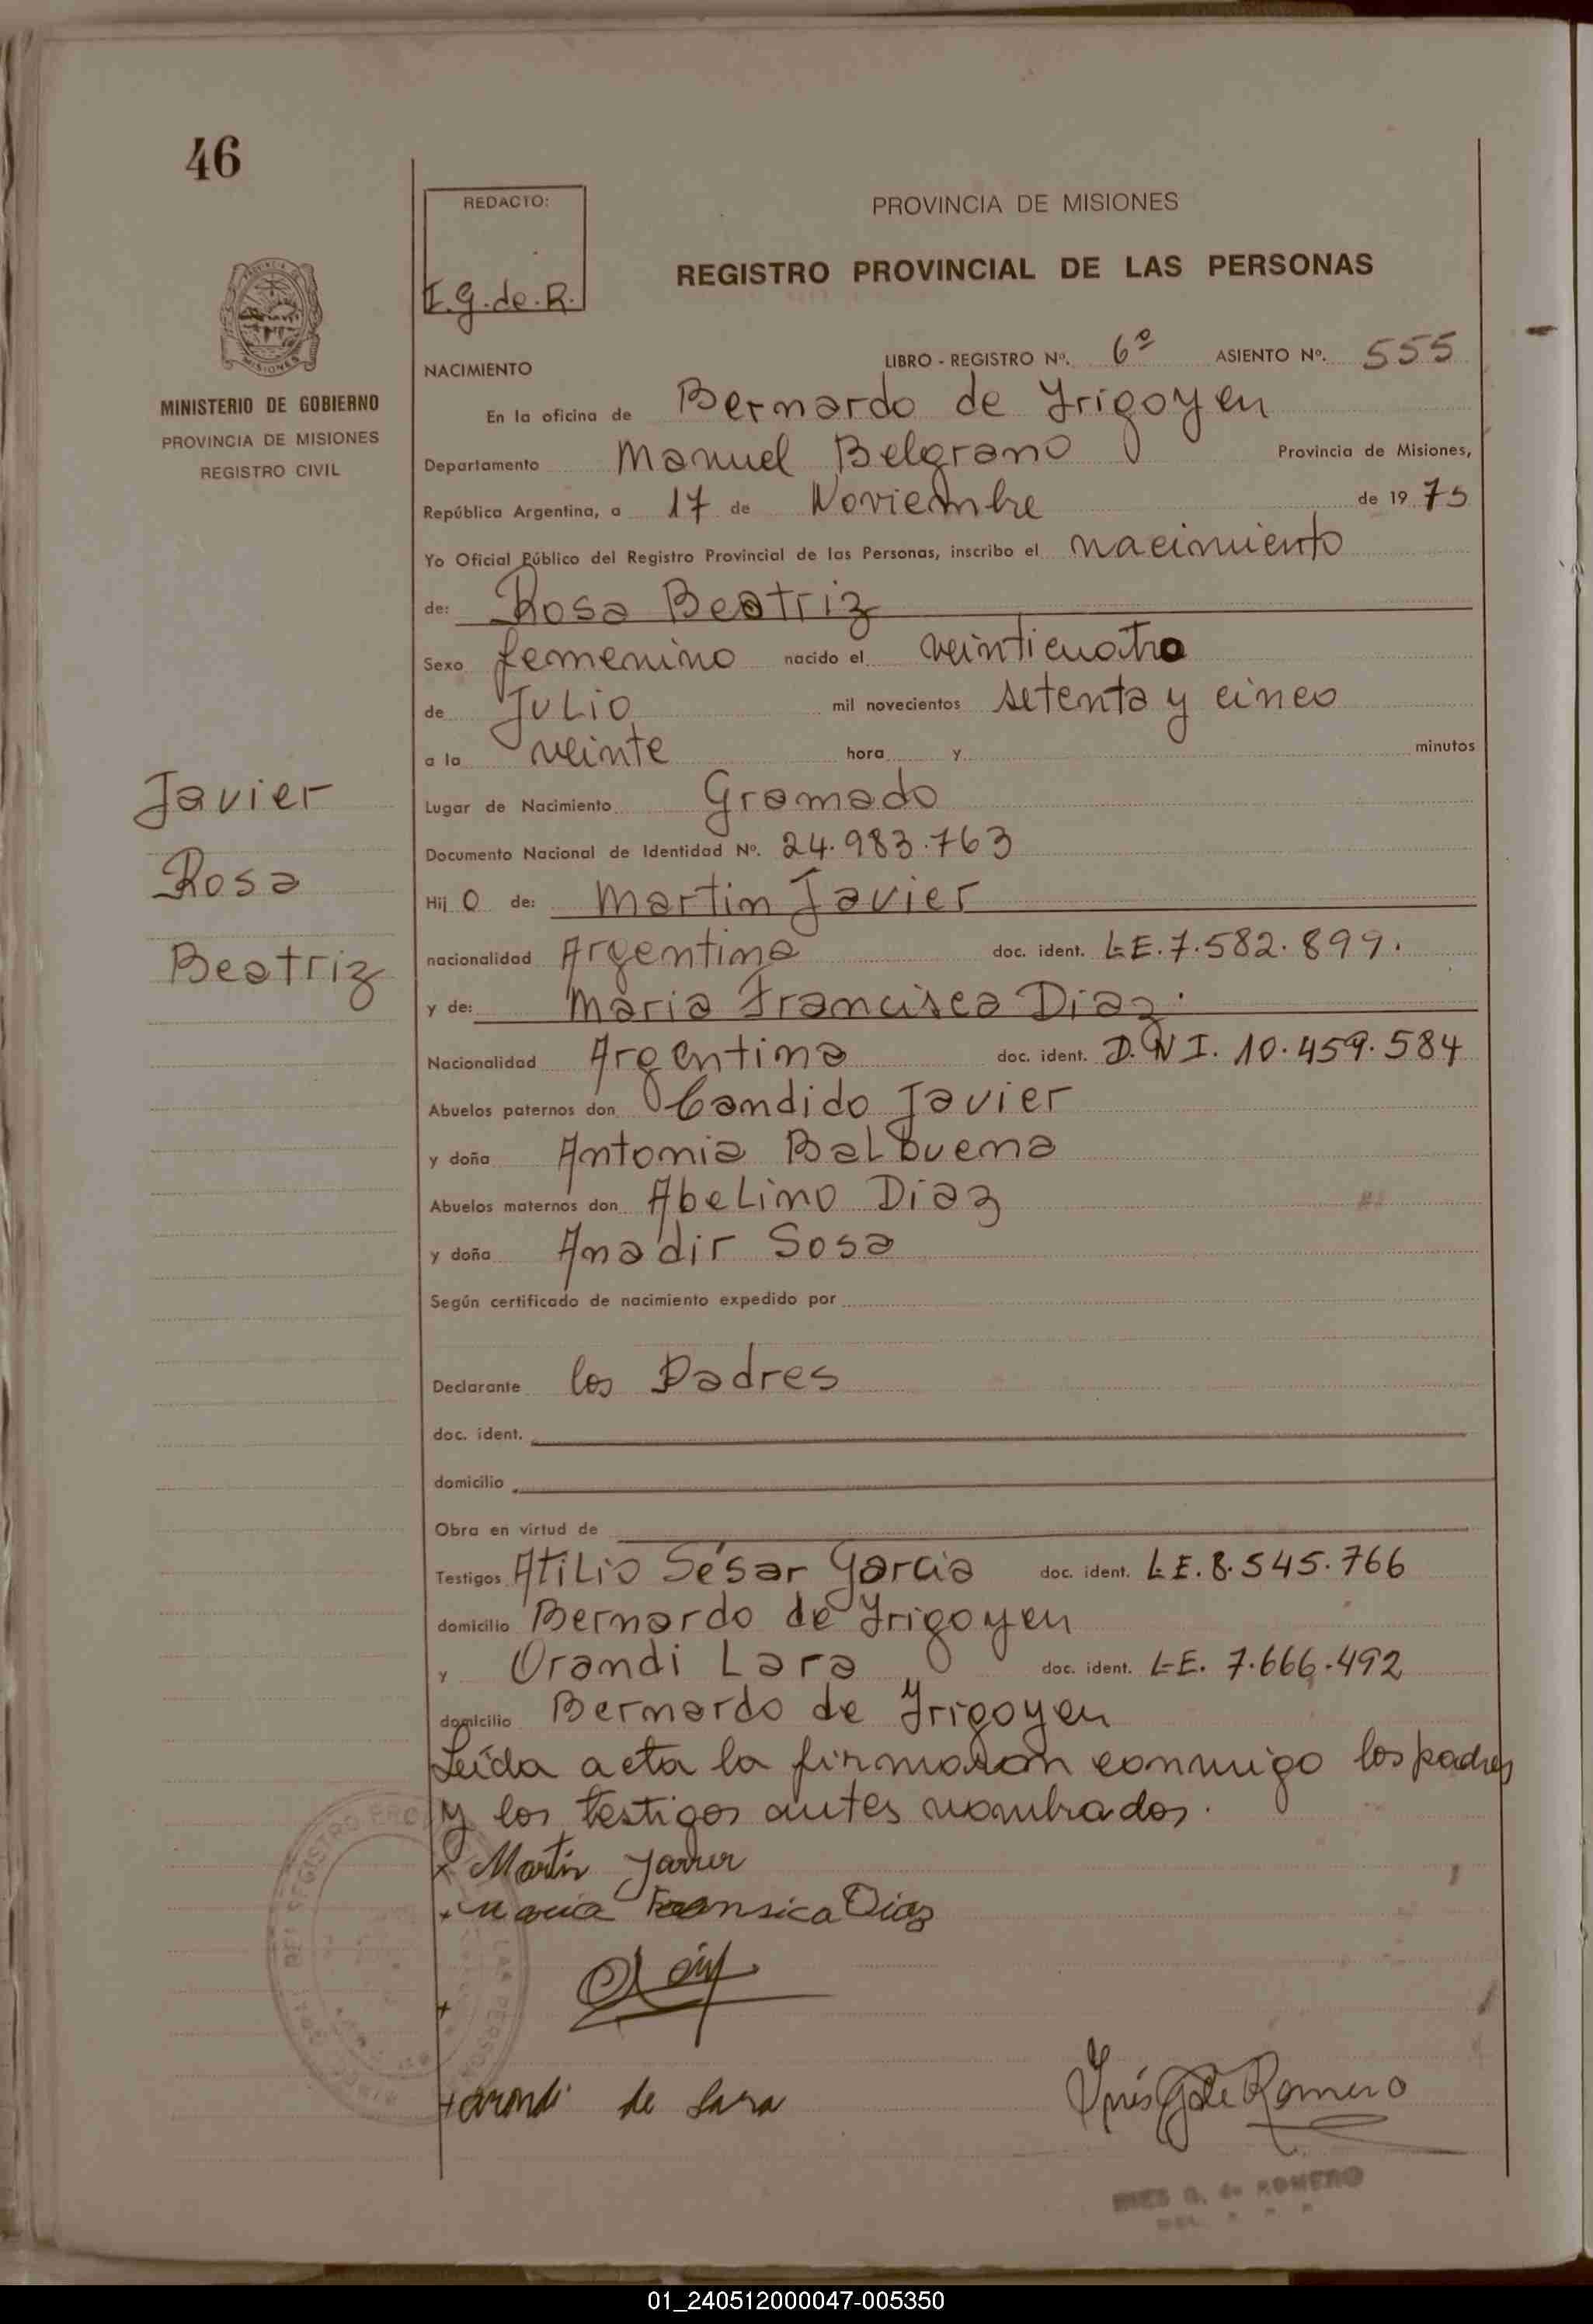 46
REDACTO:
I.G.de.R.
PROVINCIA DE MISIONES
REGISTRO PROVINCIAL DE LAS PERSONAS
MISIONES
MINISTERIO DE GOBIERNO
PROVINCIA DE MISIONES
REGISTRO CIVIL
NACIMIENTO
LIBRO - REGISTRO Nº. 6º ASIENTO Nº. 555
En la oficina de Bernardo de Yrigoyen
Departamento Manuel Belgrano Provincia de Misiones,
República Argentina, a 17 de Noviembre de 1975
Yo Oficial Público del Registro Provincial de las Personas, inscribo el nacimiento
de: Rosa Beatriz
Sexo femenino nacido el veinticuatro
de JULIO mil novecientos setenta y cinco
a la veinte hora y minutos
Lugar de Nacimiento Gramado
Documento Nacional de Identidad Nº. 24.983.763
Hij o de: Martin Javier
nacionalidad Argentina doc. ident. L.E.7.582.899.
y de: Maria Francisca Diaz.
Nacionalidad Argentina doc. ident. D.N.I. 10.459.584
Abuelos paternos don Candido Javier
y doña Antonia Balbuena
Abuelos maternos don Abelino Diaz
y doña Anadir Sosa
Según certificado de nacimiento expedido por
Declarante los Padres
doc. ident.
domicilio
Obra en virtud de
Testigos Atilio Sésar Garcia doc. ident. L.E.8.545.766
domicilio Bernardo de Yrigoyen
y Orandi Lara doc. ident. L.E. 7.666.492
domicilio Bernardo de Yrigoyen
Leída acta la firmaron conmigo los padres
y los testigos antes nombrados.
Javier
Rosa
Beatriz
x Martin Javier
x Maria Fransica Diaz
+
+ orandi de Lara
Inés G de Romero
INES G. de ROMERO
01_240512000047-005350